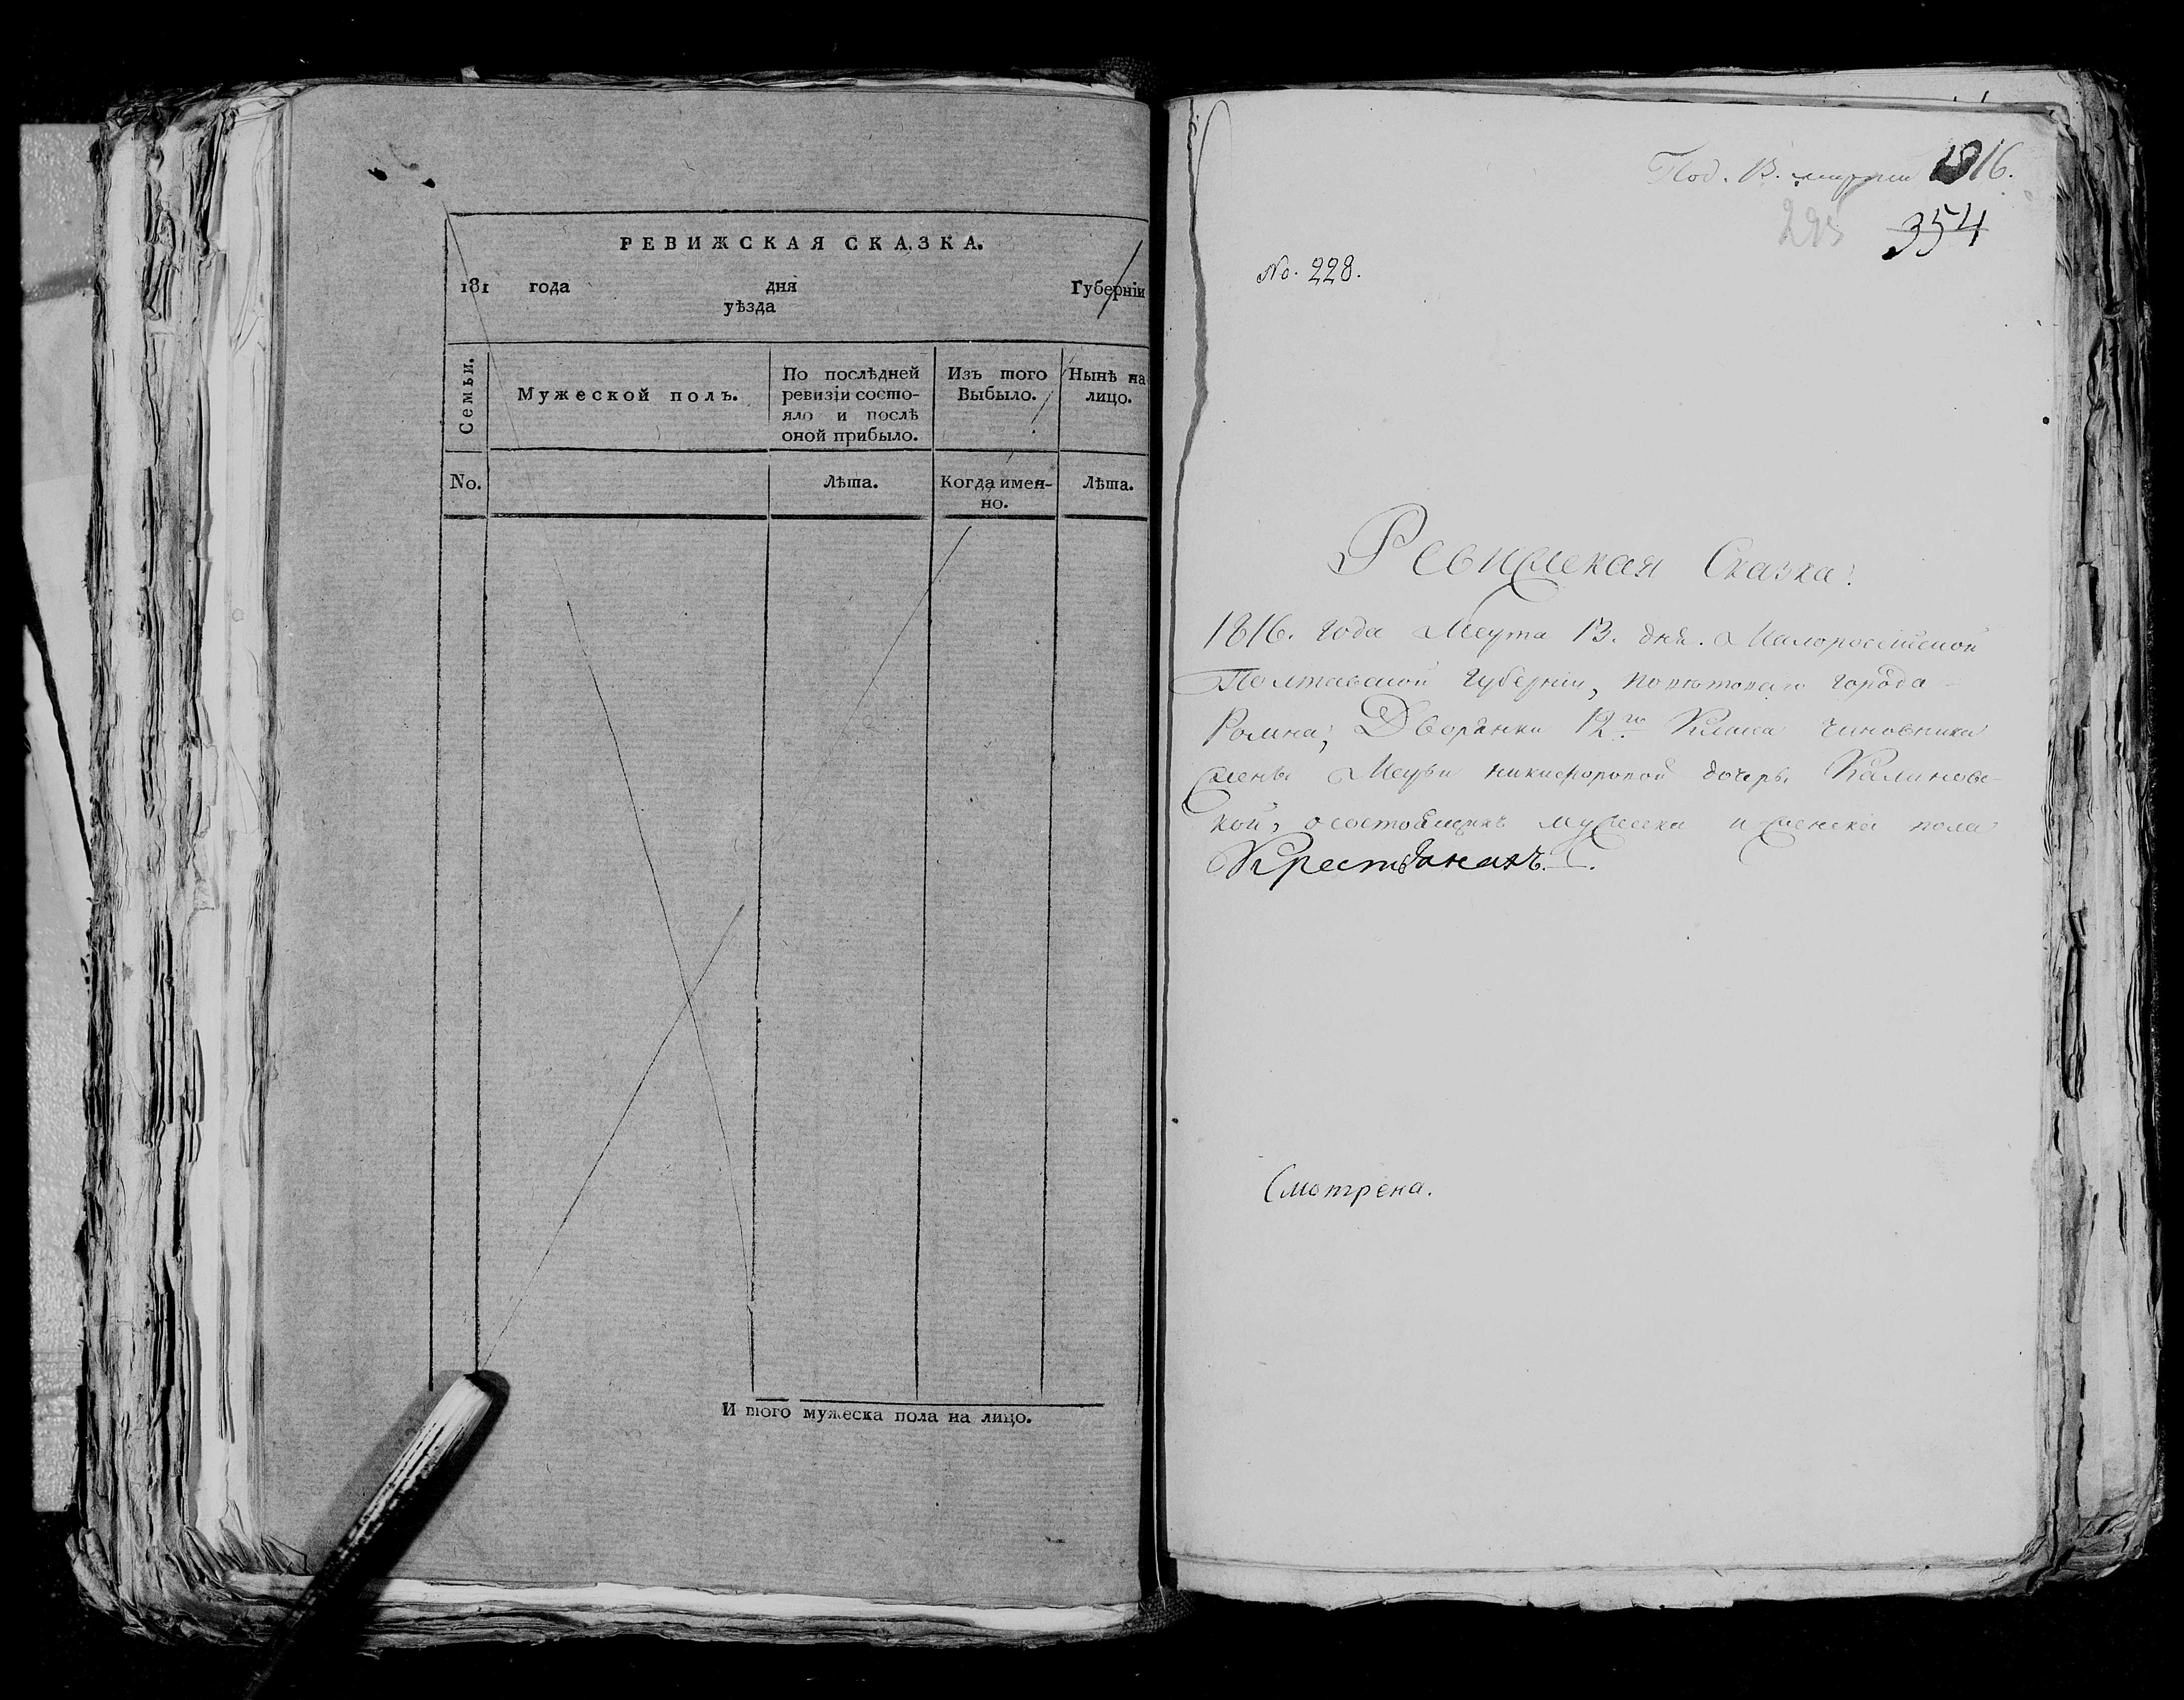 РЕВИЖСКАЯ СКАЗКА.
181 года дня Губернiи
уѣзда
Семьи.
Мужеской полъ.
По послѣдней ревизiи состо-яло и послѣ оной прибыло.
Изъ того Выбыло.
Нынѣ на лицо.
No.
Лѣта.
Когда имен-но.
Лѣта.
И того мужеска пола на лицо.
Под. 13. марта 1816.
295 354
No. 228.
Ревижская Сказка:
1816. года Марта 13. дня. Малороссiйской
Полтавской губернiи, повѣтоваго города
Ромна, Дворянки 12го Класса чиновника
жены Марьи никифоровой дочери Калиновс-
кой, о состоящихъ мужеска и женска пола
Крестьянахъ.
Смотрена.